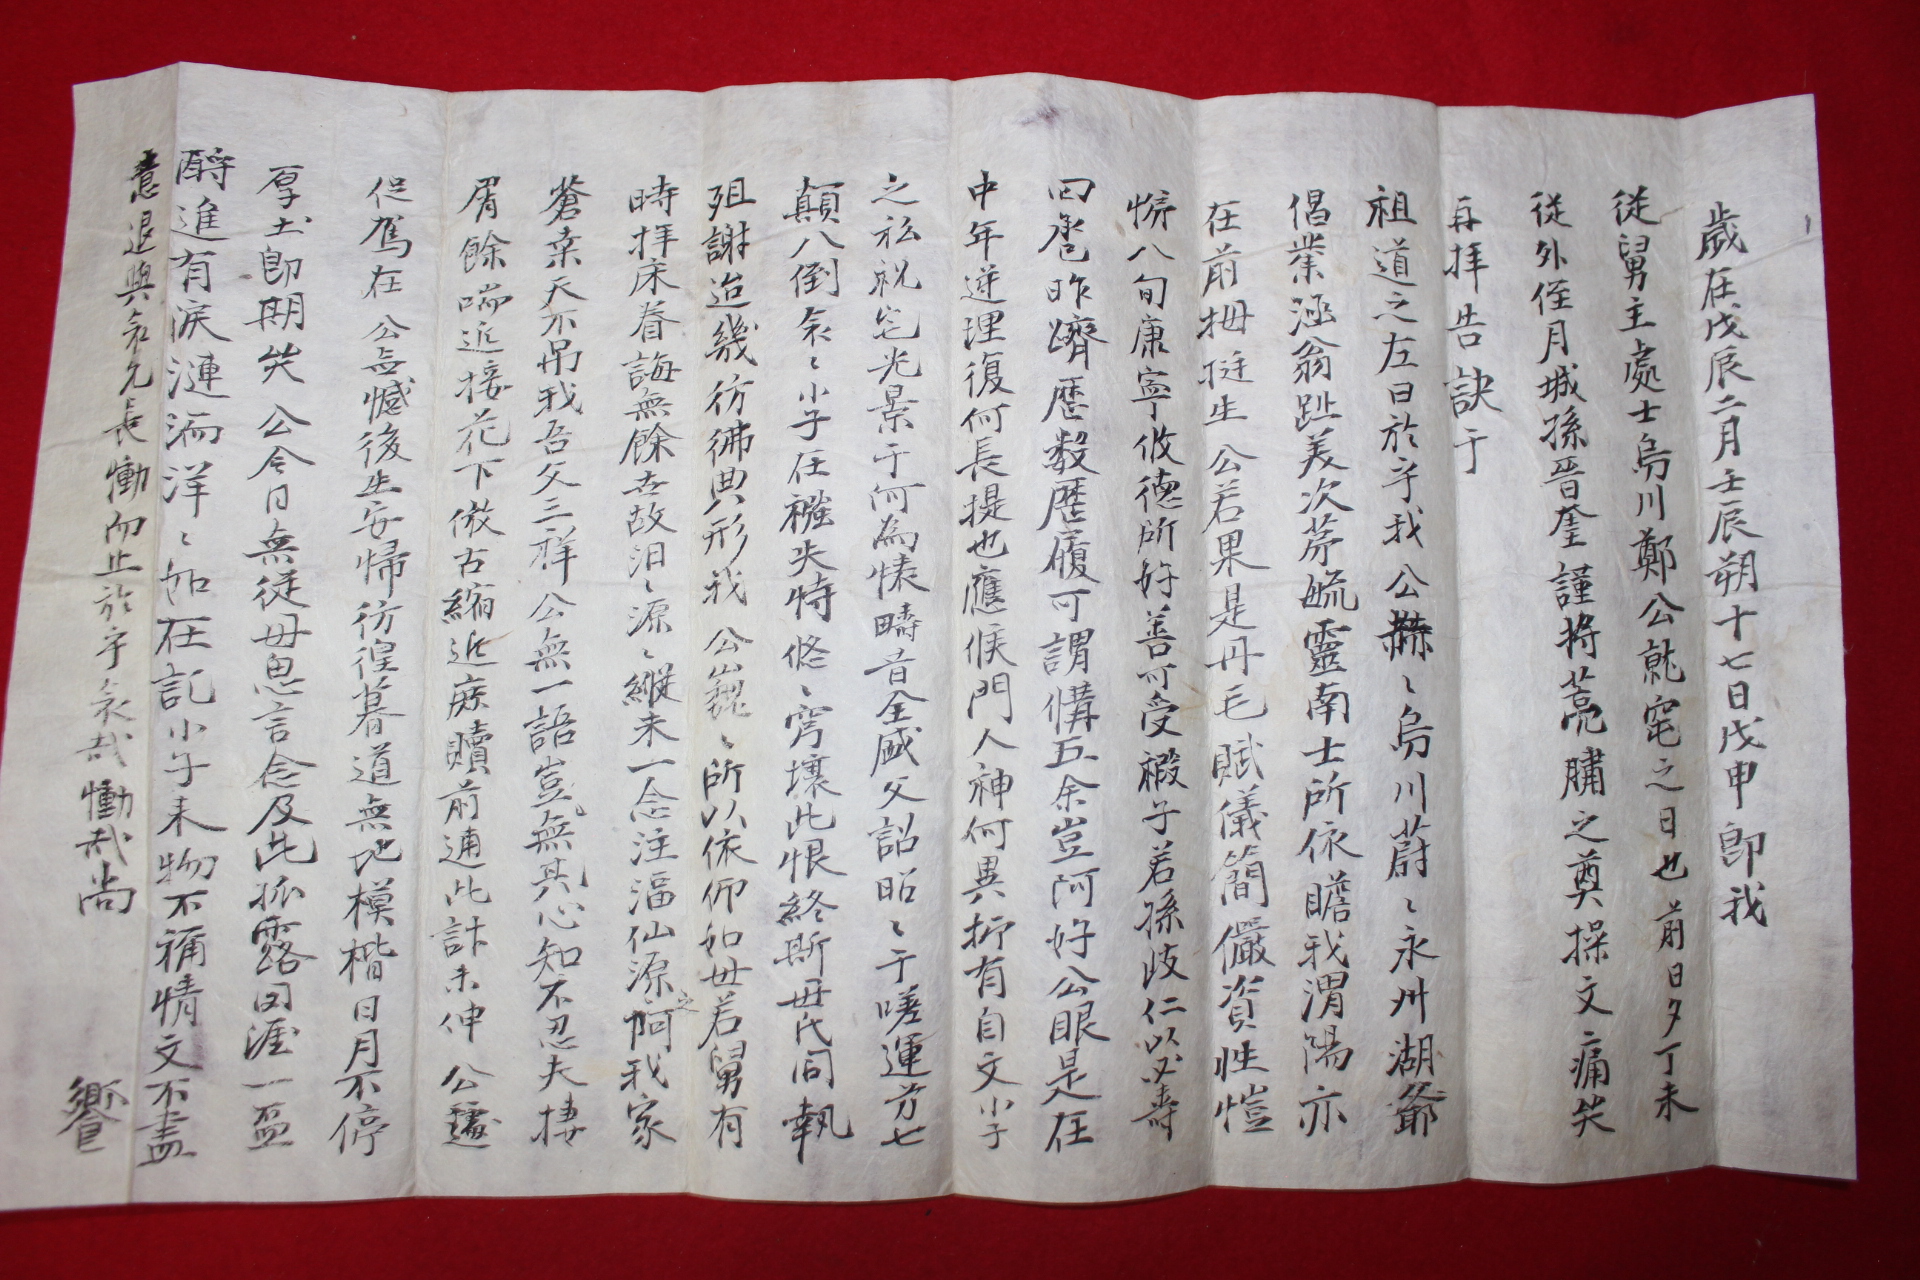 歲在戊辰二月壬辰朔十七日戊申卽我
從舅主處士烏川鄭公就窀之日也前日夕丁未
從外侄月城孫晋奎謹將薧鱐之奠操文痛哭
再拝告訣于
祖道之左曰於乎我公赫〻烏川蔚〻永州湖爺
倡業涵翁趾美次茅毓靈南士所依瞻我渭陽亦
在前拇挺生公若果是丹毛賦儀簡儼資性愷
悌八旬康寧攸德所好善可受嘏子若孫歧仁以必壽
回卺昨躋歷数歷履可謂備五余豈阿好公眼是在
中年逆理復何長提也應候門人神何異折有自文小子
之私祝宅光景于何為懐疇昔全盛父詔昭〻于嗟運芳七
顛八倒哀〻小子在襁失恃悠〻穹壤此恨終斯毋氏同執
殂謝迨幾彷彿典形我公巍〻所以依仰如母若舅有
時拝床眷誨無餘世故汨〻源〻縱未一念注湢仙源之阿我家
蒼桒天不吊我吾父三祥公無一語豈無其心知不忍夫捿
屑餘喘近接花下倣古縮近庶贖前逋此計未伸公遽
促駕在公無憾後生安帰彷徨暮道無地模楷日月不停
厚土卽期哭公今日無従毋恩言念及此孤露因涯一盃
酹進有淚漣洏洋〻如在記小子来物不穪情文不盡
意退與哀允長慟而止於乎哀哉慟哉尚
饗